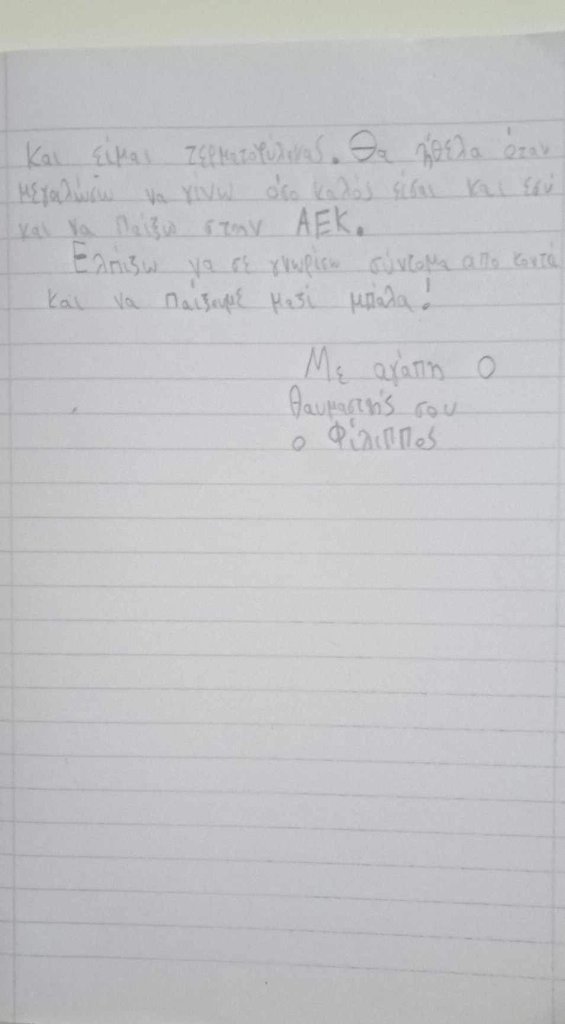 και είμαι τερματοφύλακας. Θα ήθελα όταν
μεγαλώσω να γίνω όσο καλός είσαι και εσύ
και να παίξω στην ΑΕΚ.
Ελπίζω να σε γνωρίσω σύντομα απο κοντά
και να παίξουμε μαζί μπάλα!
Με αγάπη Ο
θαυμαστής σου
ο Φίλιππος